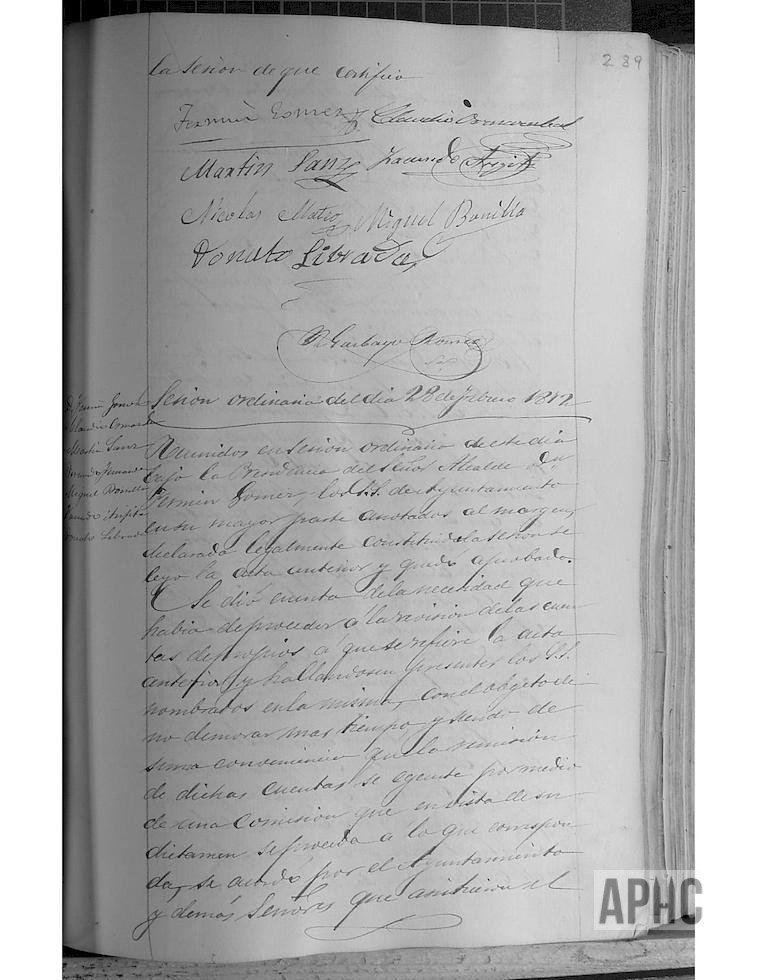 289
la sesion de que certifico
Fermin Gomez Claudio
Martin Sanz Facundo
Nicolas Mateo Miguel Bonilla
Donato Librado
Garbayo
Sesion ordinaria del dia 28 de Febrero 1872
D. Fermin Gomez
Claudio
Martin Sanz
Miguel Bonilla
Facundo
Donato Librado
Reunidos en Sesion ordinaria de este dia
bajo la Presidencia del Señor Alcalde Dn
Fermin Gomez, los S.S. de Ayuntamiento
en su mayor parte anotados al margen,
declarada legalmente constituida la sesion se
leyo la acta anterior y quedó aprobada.
Se dió cuenta de la necesidad que
habia de proceder á la revision de las cuen
tas de propios á que se refiere la acta
anterior, y hallandosen presentes los S.S.
nombrados en la misma, con el objeto de
no demorar mas tiempo y siendo de
suma conveniencia que la remisión
de dichas cuentas se egecute por medio
de una Comision que en vista de su
dictamen se proceda a lo que correspon
da, se acordó por el Ayuntamiento
y demás Señores que asistieron al
APHC